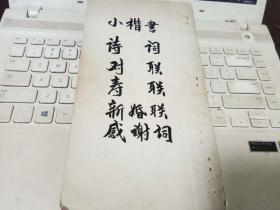 小楷書
诗词
对联
寿联
新婚联
感谢词